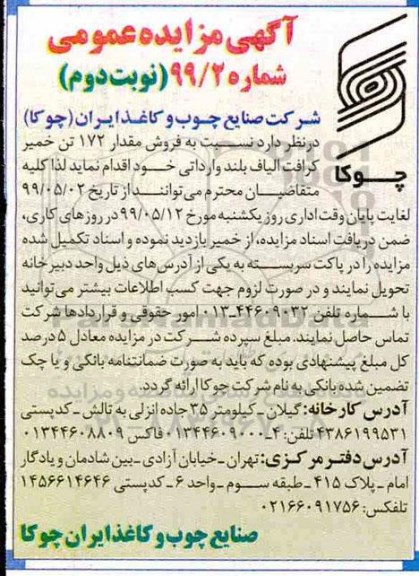 آگهی مزایده عمومی
شماره ۹۹/۲ (نوبت دوم)
چوکا
شرکت صنایع چوب و کاغذ ایران (چوکا)
در نظر دارد نسبت به فروش مقدار ۱۷۲ تن خمیر
کرافت الیاف بلند وارداتی خود اقدام نماید لذا کلیه
متقاضیان محترم می‌توانند از تاریخ ۹۹/۰۵/۰۲
لغایت پایان وقت اداری روز یکشنبه مورخ ۹۹/۰۵/۱۲ در روزهای کاری،
ضمن دریافت اسناد مزایده، از خمیر بازدید نموده و اسناد تکمیل شده
مزایده را در پاکت سربسته به یکی از آدرس‌های ذیل واحد دبیرخانه
تحویل نمایند و در صورت لزوم جهت کسب اطلاعات بیشتر می‌توانید
با شماره تلفن ۴۴۶۰۹۰۳۲-۰۱۳ امور حقوقی و قراردادها شرکت
تماس حاصل نمایند. مبلغ سپرده شرکت در مزایده معادل ۵ درصد
کل مبلغ پیشنهادی بوده که باید به صورت ضمانتنامه بانکی و یا چک
تضمین شده بانکی به نام شرکت چوکا ارائه گردد.
آدرس کارخانه: گیلان ـ کیلومتر ۳۵ جاده انزلی به تالش ـ کدپستی
۴۳۸۶۱۹۹۵۳۱ تلفن: ۴ـ۰۱۳۴۴۶۰۹۰۰۰ فاکس ۰۱۳۴۴۶۰۸۸۰۹
آدرس دفتر مرکزی: تهران ـ خیابان آزادی ـ بین شادمان و یادگار
امام ـ پلاک ۴۱۵ ـ طبقه سوم ـ واحد ۶ ـ کدپستی ۱۴۵۶۶۱۴۶۴۶
تلفکس: ۰۲۱۶۶۰۹۱۷۵۶
صنایع چوب و کاغذ ایران چوکا